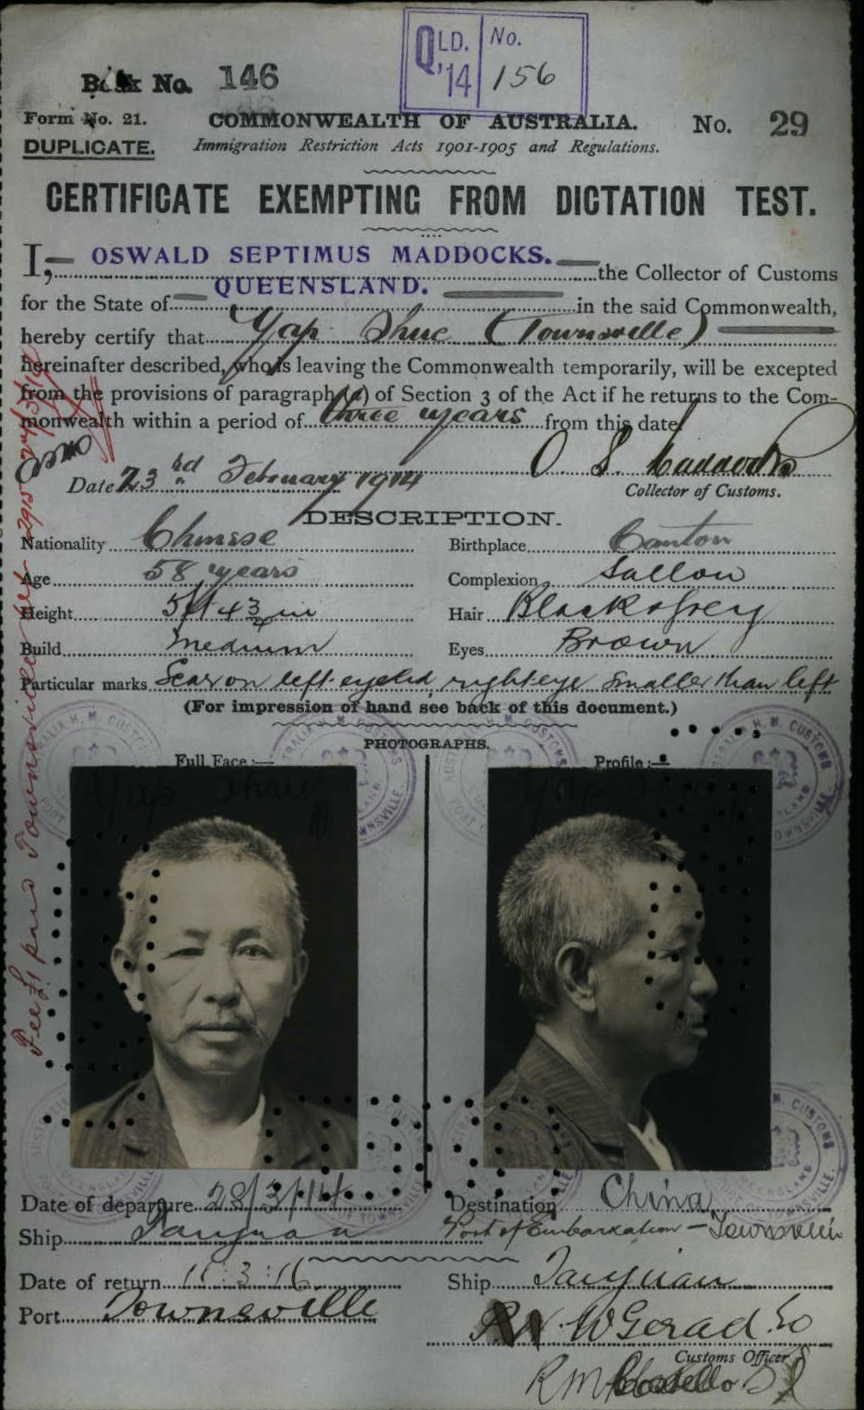 QLD. No.
'14 156
Book No. 146
Form No. 21. COMMONWEALTH OF AUSTRALIA. No. 29
DUPLICATE. Immigration Restriction Acts 1901-1905 and Regulations.
CERTIFICATE EXEMPTING FROM DICTATION TEST.
I, OSWALD SEPTIMUS MADDOCKS. the Collector of Customs
for the State of QUEENSLAND. in the said Commonwealth,
hereby certify that Yap Shue (Townsville)
hereinafter described, who is leaving the Commonwealth temporarily, will be excepted
from the provisions of paragraph (a) of Section 3 of the Act if he returns to the Com-
monwealth within a period of three years from this date.
O. S. Maddocks
Date 23rd February 1914 Collector of Customs.
DESCRIPTION.
Nationality Chinese Birthplace Canton
Age 58 years Complexion Sallow
Height 5ft 4 3/4 in Hair Black & grey
Build medium Eyes Brown
Particular marks Scar on left eyelid, right eye smaller than left
(For impression of hand see back of this document.)
PHOTOGRAPHS.
Full Face:— Profile:—
Fee £1 paid Townsville
Date of departure 28/3/14 Destination China
Ship Taiyuan Port of Embarkation - Townsville
Date of return 11.3.16 Ship Taiyuan
Port Townsville
Customs Officer